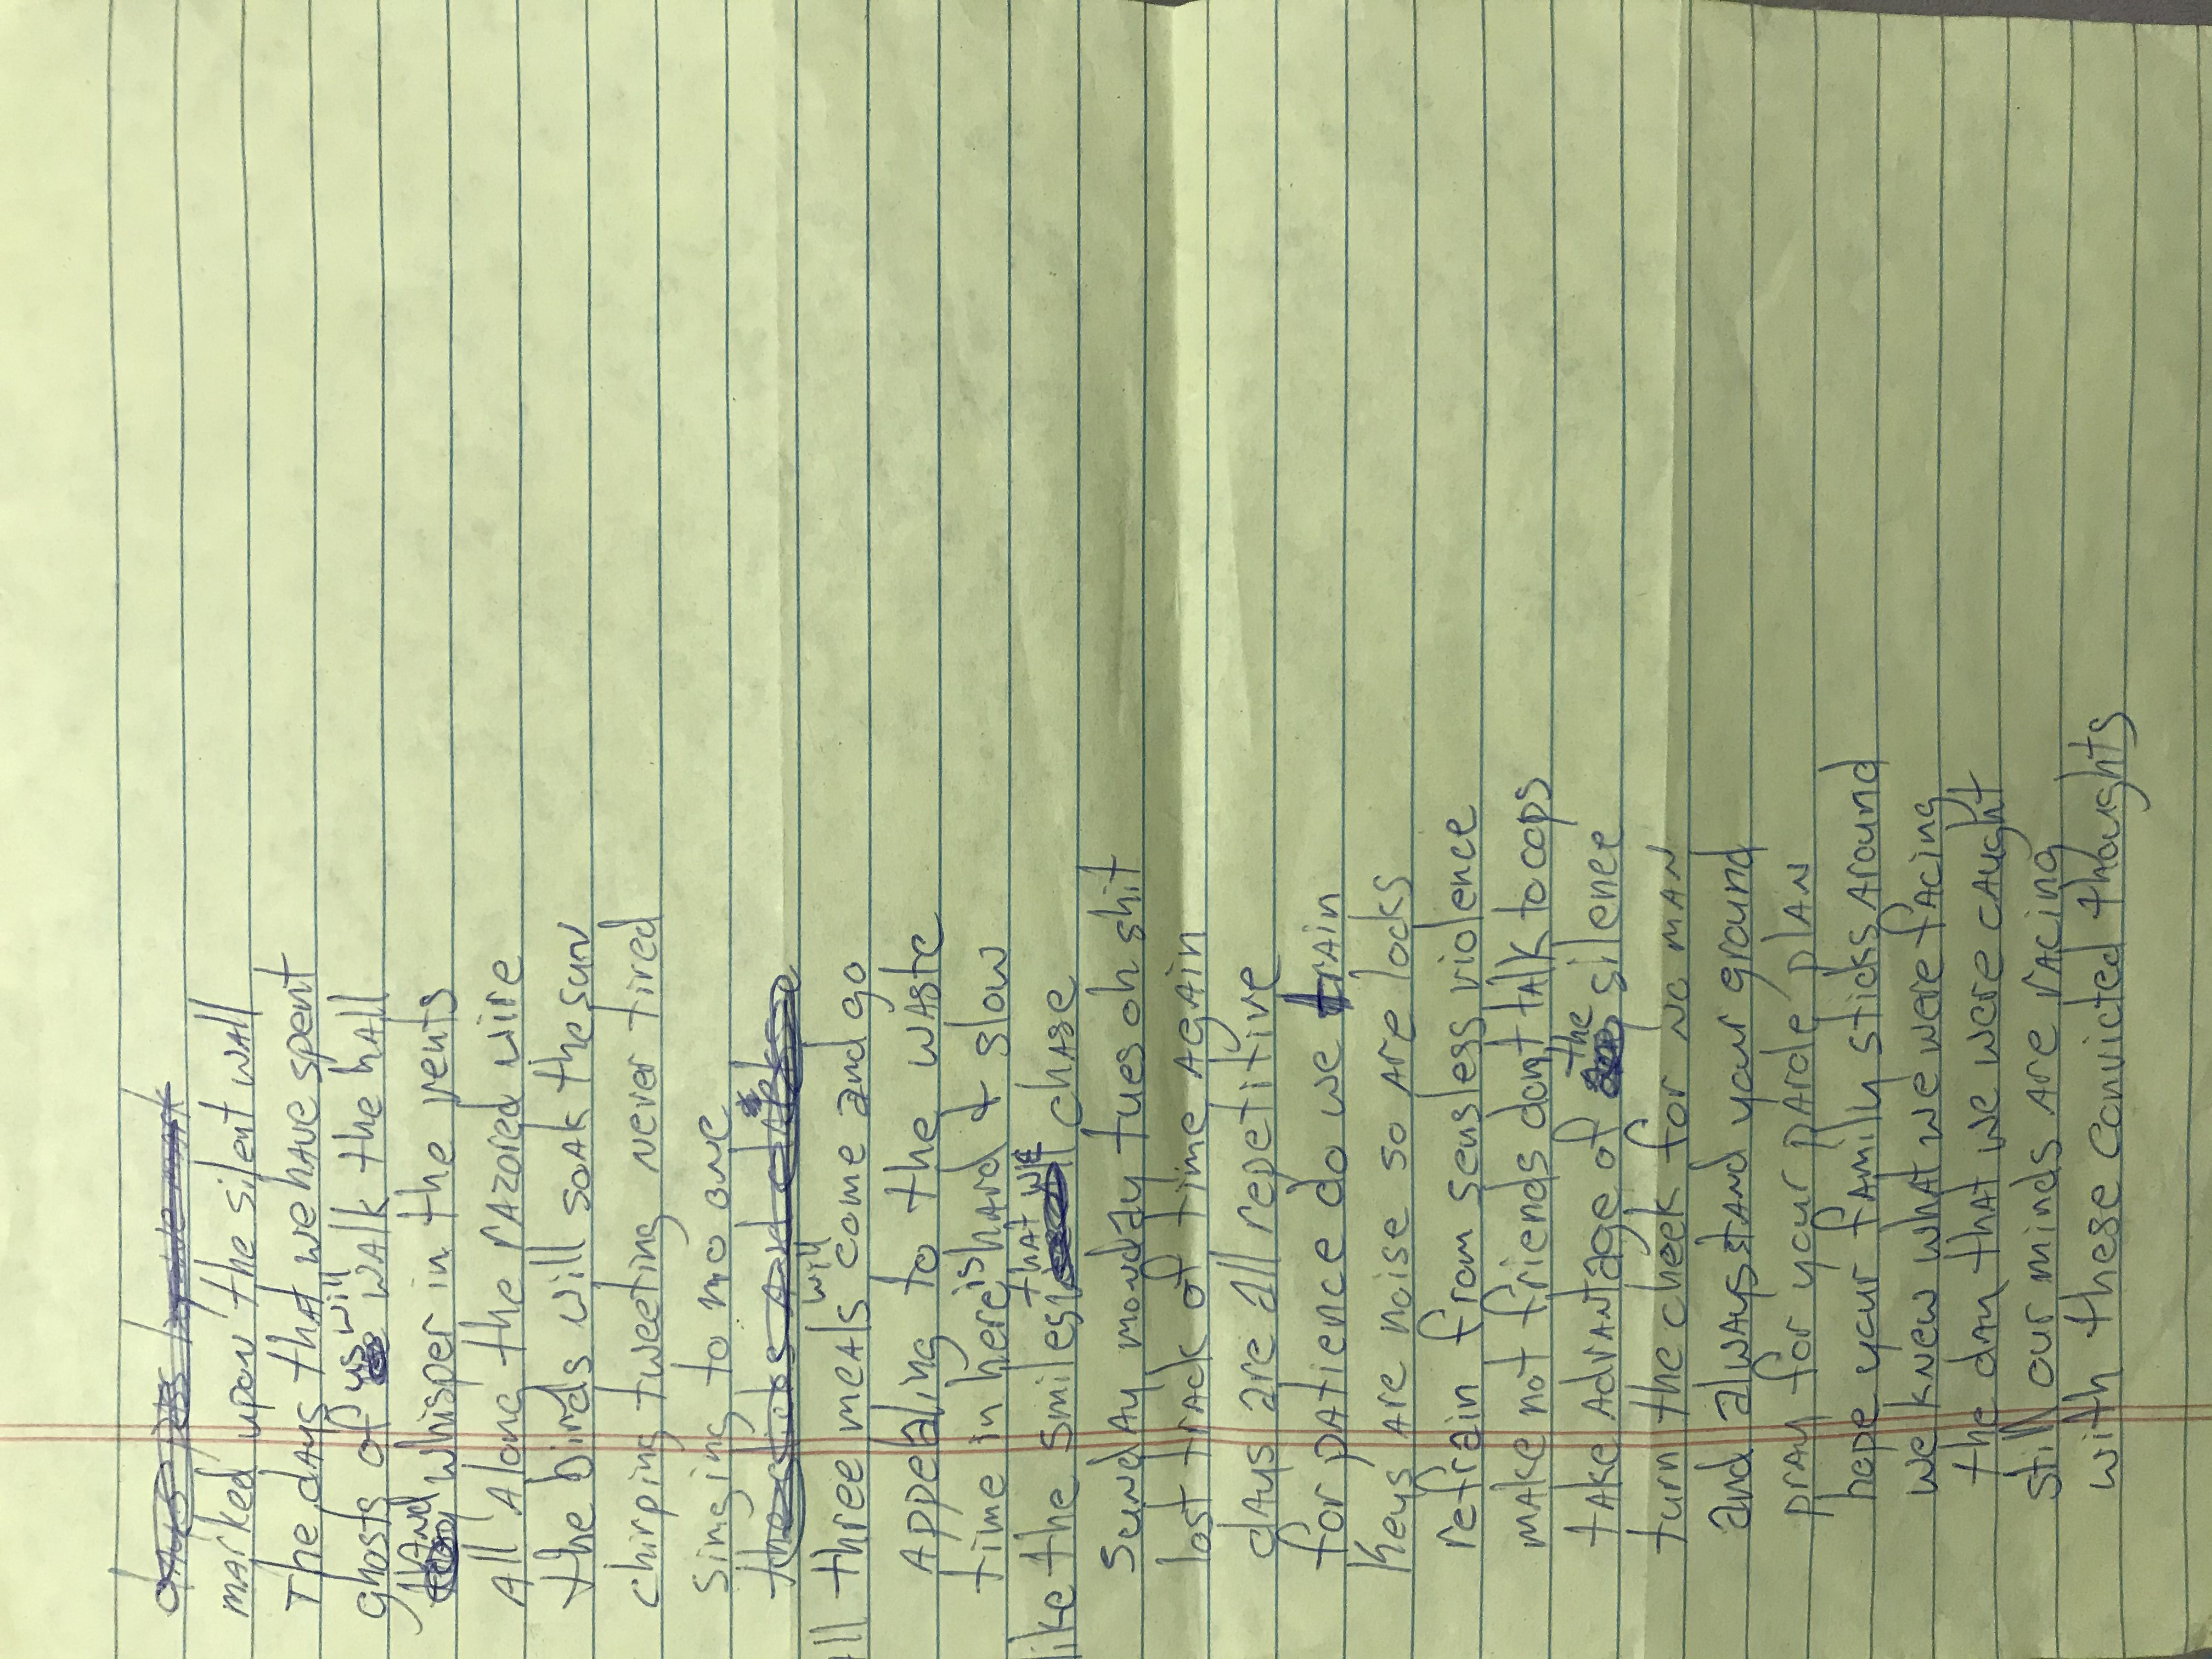 marked upon the silent wall
The days that we have spent
Ghosts of us will walk the hall
And whisper in the vents
All along the razored wire
the birds will soak the sun
chirping tweeting never tired
singing to no one
all three meals will come and go
Appealing to the waste
time in here is hard & slow
like the smiles that we chase
Sunday monday tues oh shit
lost track of time again
days are all repetitive
for patience do we train
Keys are noise so are locks
refrain from sensless violence
make not friends dont talk to cops
take advantage of the silence
turn the cheek for no man
and always stand your ground
pray for your parole plan
hope your family sticks around
we knew what we were facing
the day that we were caught
still our minds are racing
with these convicted thoughts